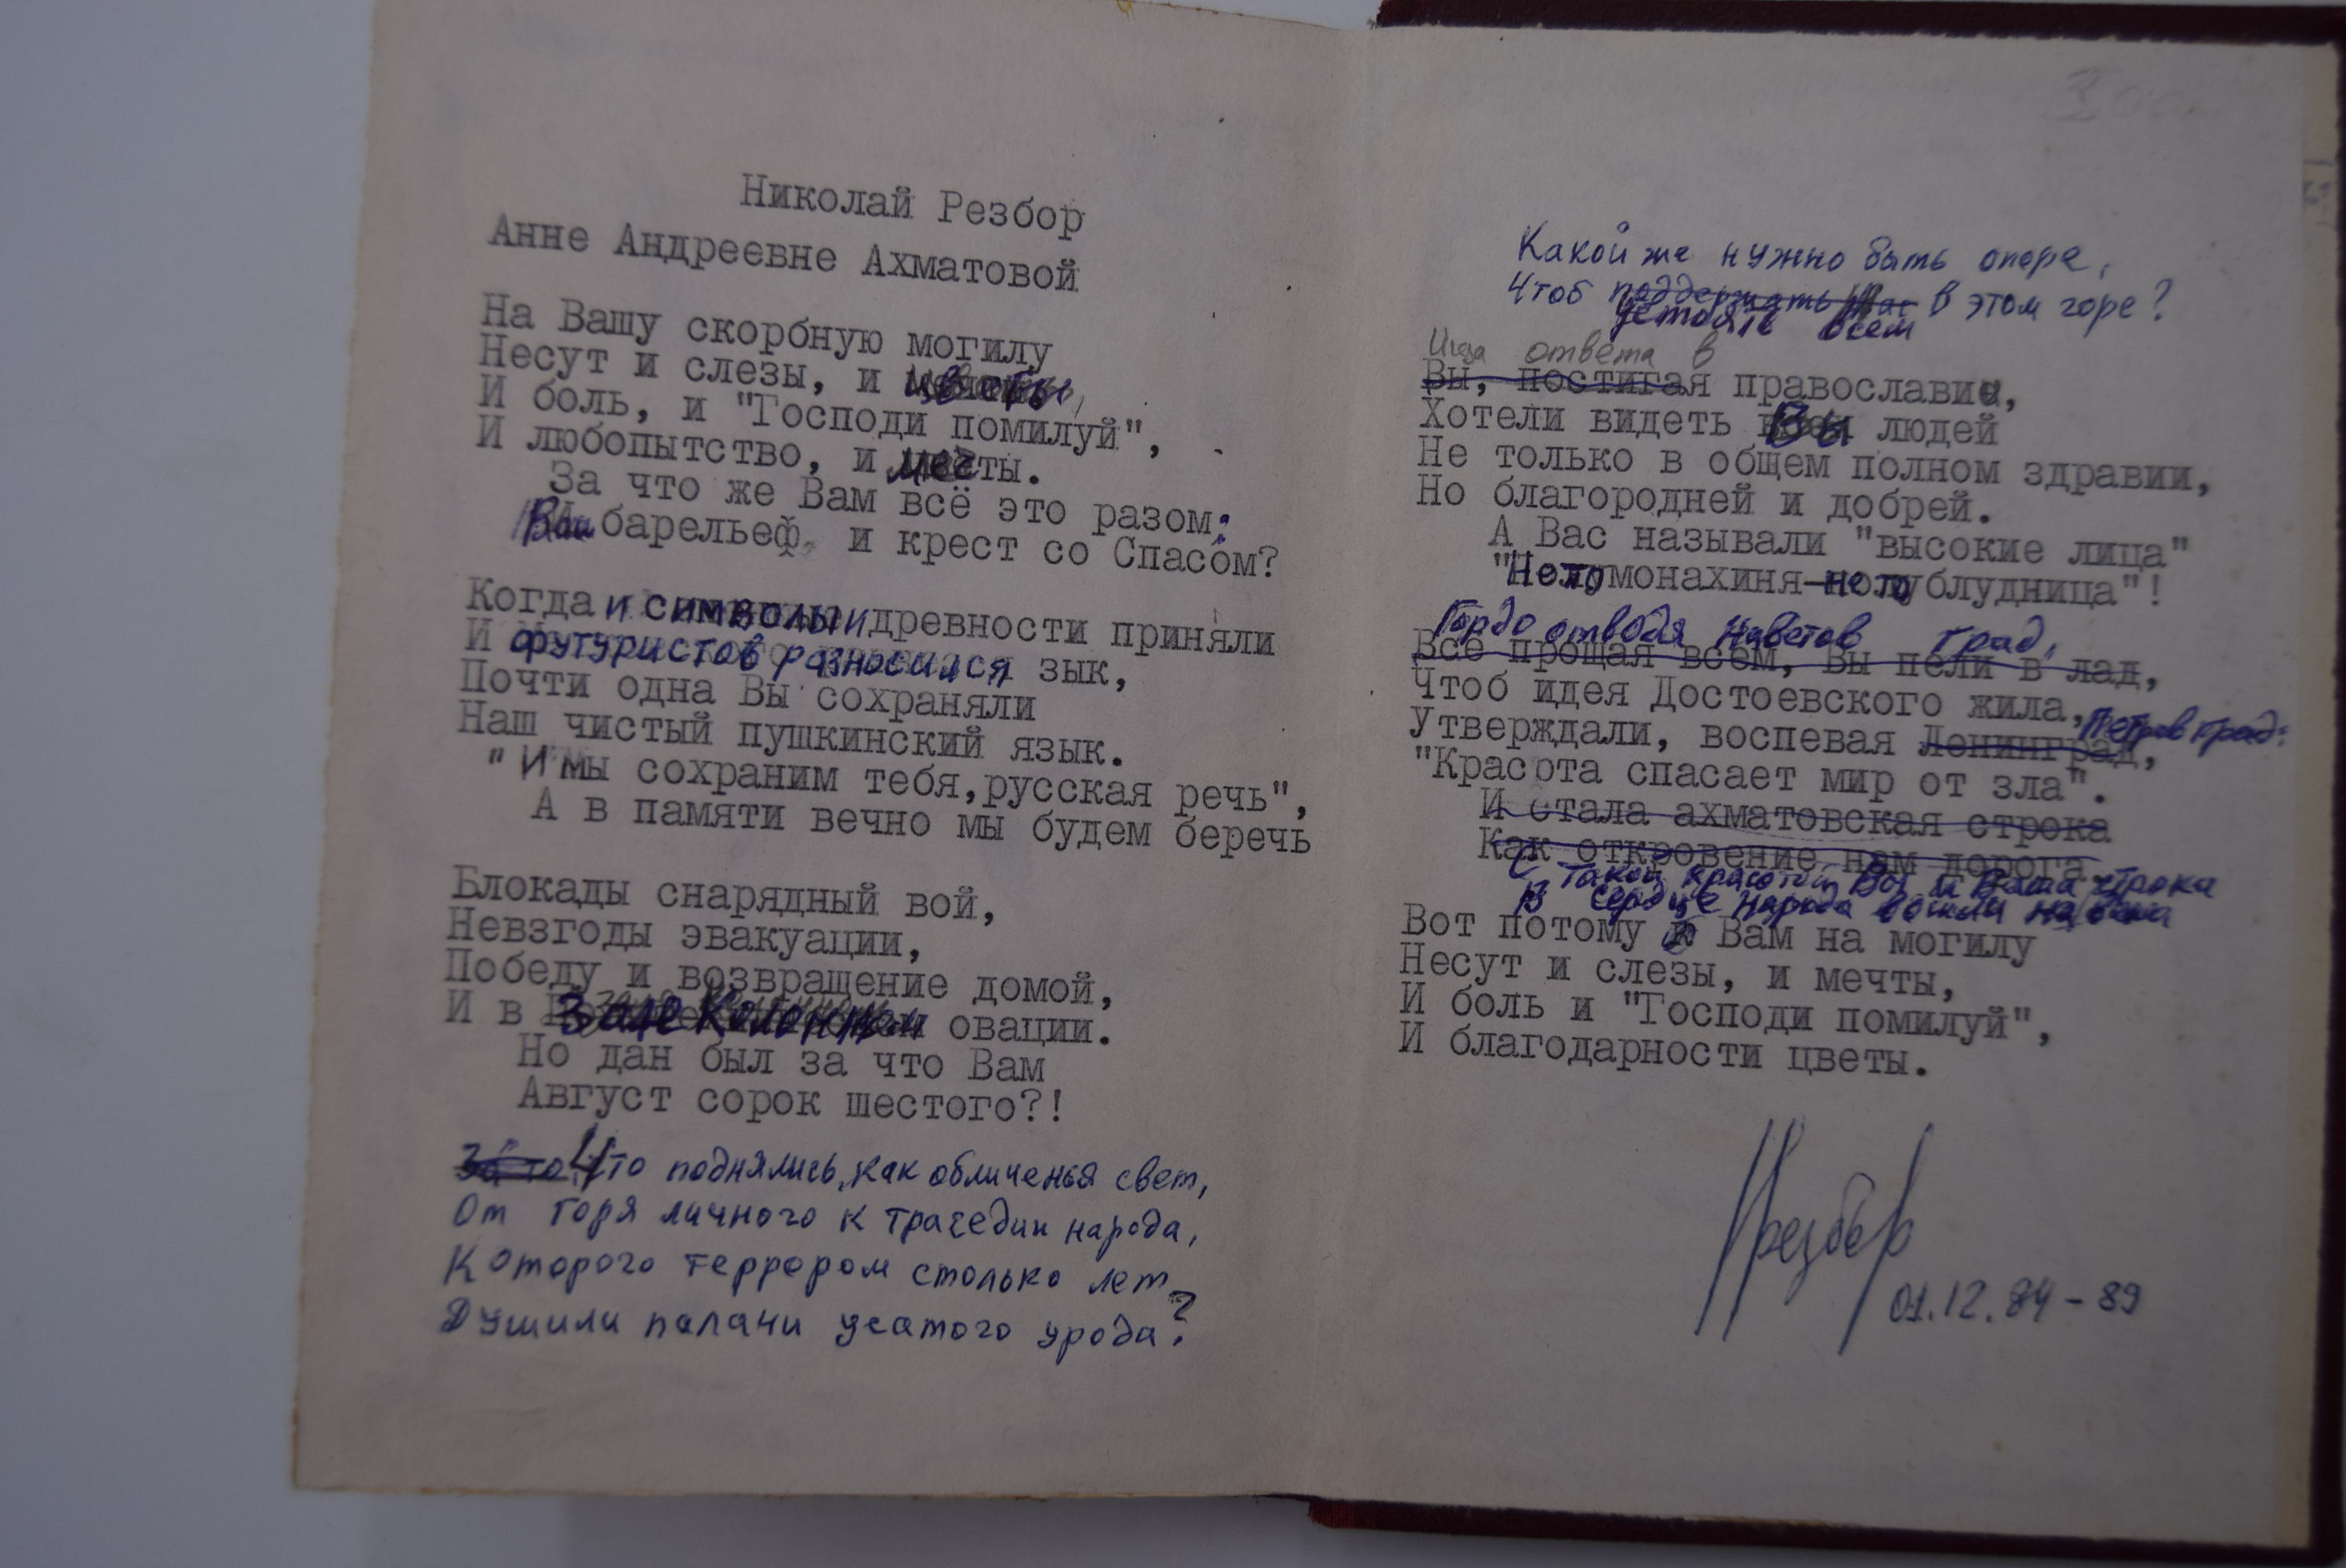 Николай Резбор
Анне Андреевне Ахматовой
На Вашу скорбную могилу
Несут и слезы, и цветы,
И боль, и "Господи помилуй",
И любопытство, и мечты.
За что же Вам всё это разом:
Ваш барельеф, и крест со Спасом?
Когда и символы и древности приняли
И футуристов разносился зык,
Почти одна Вы сохраняли
Наш чистый пушкинский язык.
"И мы сохраним тебя, русская речь",
А в памяти вечно мы будем беречь
Блокады снарядный вой,
Невзгоды эвакуации,
Победу и возвращение домой,
И в Зале Колонном овации.
Но дан был за что Вам
Август сорок шестого?!
За то, Что поднялись, как обличенья свет,
От горя личного к трагедии народа,
Которого террором столько лет
Душили палачи усатого урода?
Какой же нужно быть опоре,
Чтоб поддержать Вас в этом горе?
устоять всем
Ища ответа в
Вы, постигая православии,
Хотели видеть Вы людей
Не только в общем полном здравии,
Но благородней и добрей.
А Вас называли "высокие лица"
"Не то монахиня - не то блудница"!
Гордо отводя наветов град,
Всё прощая всем, Вы пели в лад,
Чтоб идея Достоевского жила,
Утверждали, воспевая Ленинград, Петров град:
"Красота спасает мир от зла".
И стала ахматовская строка
Как откровение нам дорога.
С такой красотой Вы и Ваша строка
В сердце народа вошли на века
Вот потому к Вам на могилу
Несут и слезы, и мечты,
И боль и "Господи помилуй",
И благодарности цветы.
НРезбор
01.12.84-89